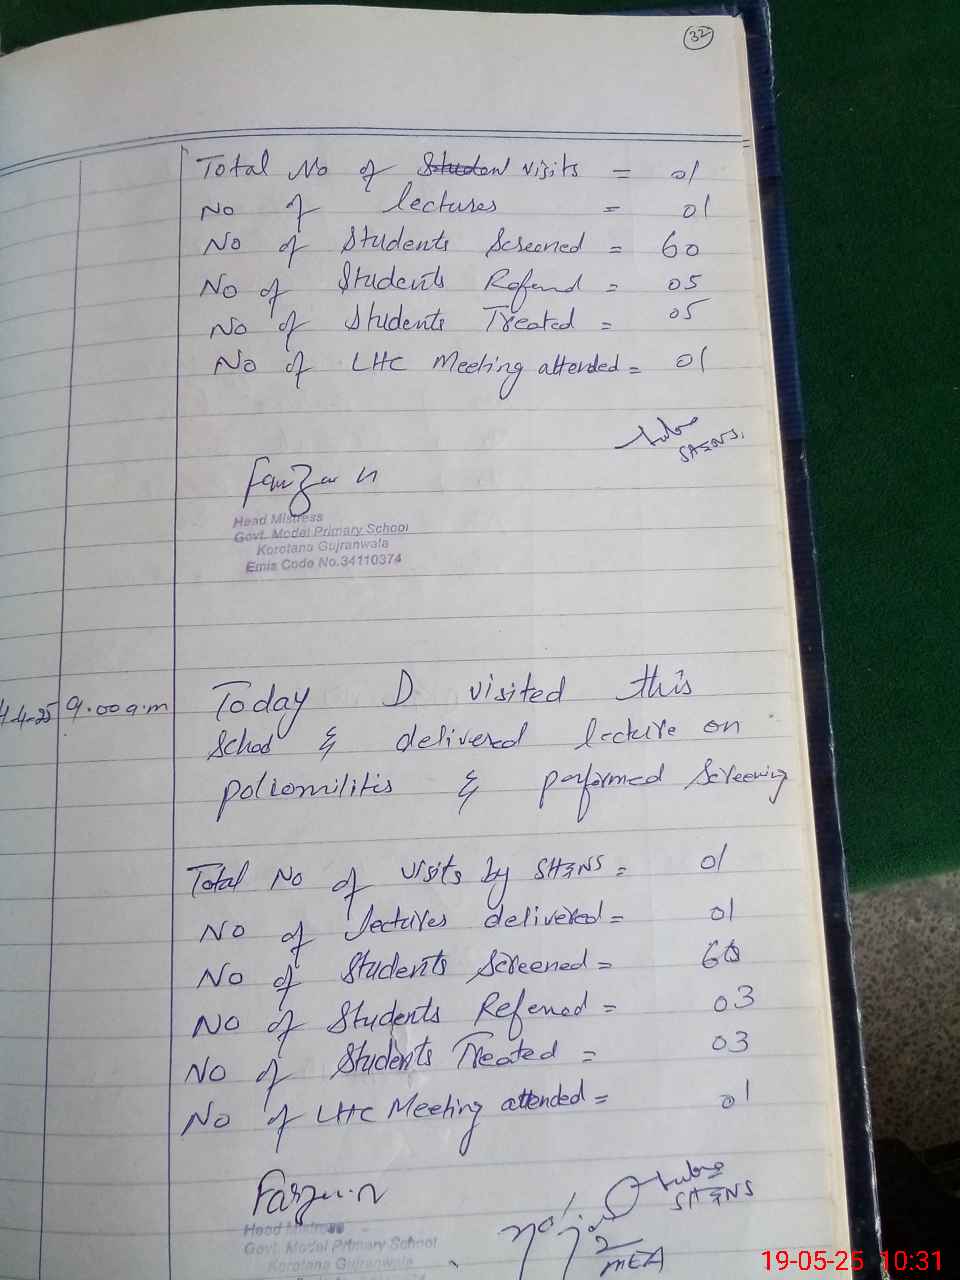 32
Total No of Studen visits = 01
No of lectures = 01
No of Students Screened = 60
No of Students Referred = 05
No of Students Treated = 05
No of LHC Meeting attended = 01
SH&NS.
Head Mistress
Govt. Model Primary School
Korotana Gujranwala
Emis Code No.34110374
4-4-25 9.00 a.m Today I visited this
School & delivered lecture on
poliomilitis & performed Screening
Total No of visits by SH&NS = 01
No of lectures delivered = 01
No of Students Screened = 60
No of Students Referred = 03
No of Students Treated = 03
No of LHC Meeting attended = 01
SH&NS
MEA
Head Mistress
Govt. Model Primary School
Korotana Gujranwala
19-05-25 10:31